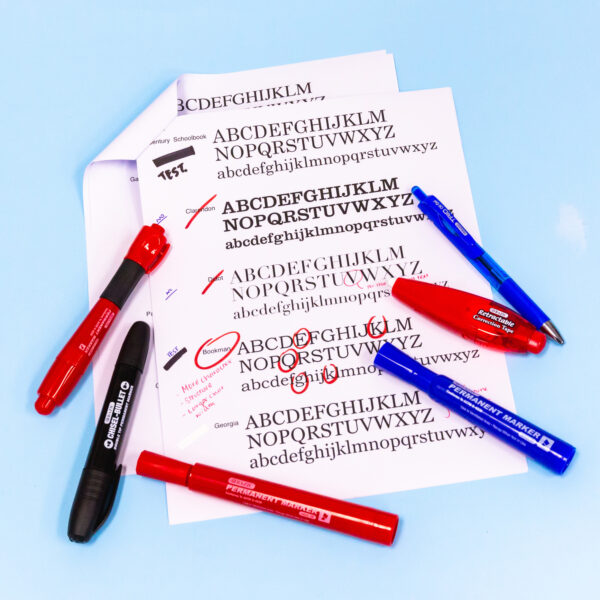 BCDEFGHIJKLM
entury Schoolbook
ABCDEFGHIJKLM
NOPQRSTUVWXYZ
abcdefghijklmnopqrstuvwxyz
TEST
Clarendon
ABCDEFGHIJKLM
NOPQRSTUVWXYZ
abcdefghijklmnopqrstuvwxyz
Didot
ABCDEFGHIJKLM
NOPQRSTUVWXYZ
abcdefghijklmnopqrs
Bookman
ABCDEFGHIJKLM
NOPQRSTUVWXYZ
abcdefghijklmnopq
TEST
- More Curvature
- Structure
Georgia
ABCDEFGHIJKLM
NOPQRSTUVWXYZ
abcdefghijklmnopqrstuvwxy
Retractable
Correction Tape
PERMANENT MARKER
CHISEL-BULLET
PERMANENT MARKER